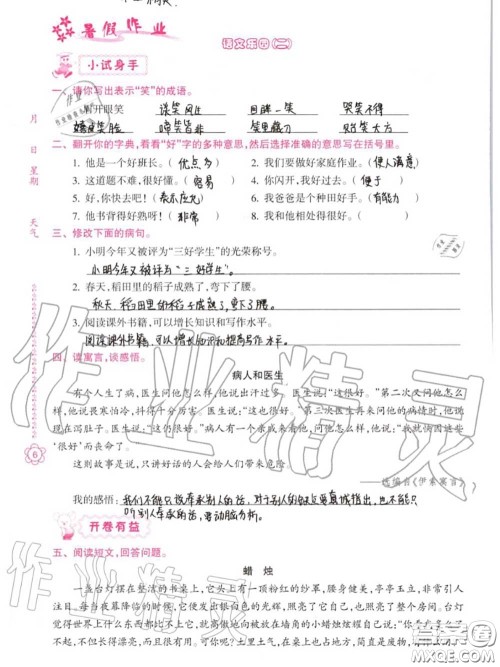 暑假作业
语文乐园(二)
小试身手
一、请你写出表示“笑”的成语。
眉开眼笑 谈笑风生 回眸一笑 哭笑不得
嫣然 啼笑皆非 笑里藏刀 贻笑大方
二、翻开你的字典,看看“好”字的多种意思,然后选择准确的意思写在括号里。
月
日
星期
天气
1. 他是一个好班长。( 优点多 ) 2. 我们要做好家庭作业。(使人满意)
3. 这道题不难,很好懂。( 容易 ) 4. 你闪开,我好过去。( 便于 )
5. 好,你快去吧!( 表示应允 ) 6. 我爸爸是个种田好手。(有能力)
7. 他书背得好熟呀!( 非常 ) 8. 我和他相处得很好。(
三、修改下面的病句。
1. 小明今年又被评为“三好学生”的光荣称号。
小明今年又被评为“三好学生”。
2. 春天,稻田里的稻子成熟了,弯下了腰。
秋天,稻田里的稻子成熟了,弯下了腰。
3. 阅读课外书籍,可以增长知识和写作水平。
阅读课外书籍,可以增长知识和提高写作水平。
四、读寓言,谈感悟。
病人和医生
有个人生了病,医生问他怎么样,他说出汗过多。医生说:“这很好。”第二次又问他怎么
样,他说畏寒怕冷,抖得十分厉害。医生说:“这也很好。”第三次医生再来问他怎么样,他说
现在泻肚子。医生说:“这也很好。”说完就走了。有个亲戚来看他,问他怎么样,他说:“我因这些
‘很好’而丧命了。”
这则故事是说,只讲好话的人会给人们带来危险。
——选编自《伊索寓言》
我的感悟:我们不能只说奉承别人的话,对于别人的缺点更要真诚指出,也不能只
听别人奉承的话,要动脑分析。
6
开卷有益
五、阅读短文,回答问题。
蜡烛
一盏台灯摆在整洁的书桌上,它头上有一顶粉红的纱罩,腰身光滑,亭亭玉立,非常引人
注目。每天晚上,它发出的光是那么明亮,
得世界上什么东西都没有它美。一天,台灯忍不住向墙角的小蜡烛炫耀自己:“喂,小个子,
你不但长得不漂亮,而且发出的光
作业精灵
作业精灵
答案圈